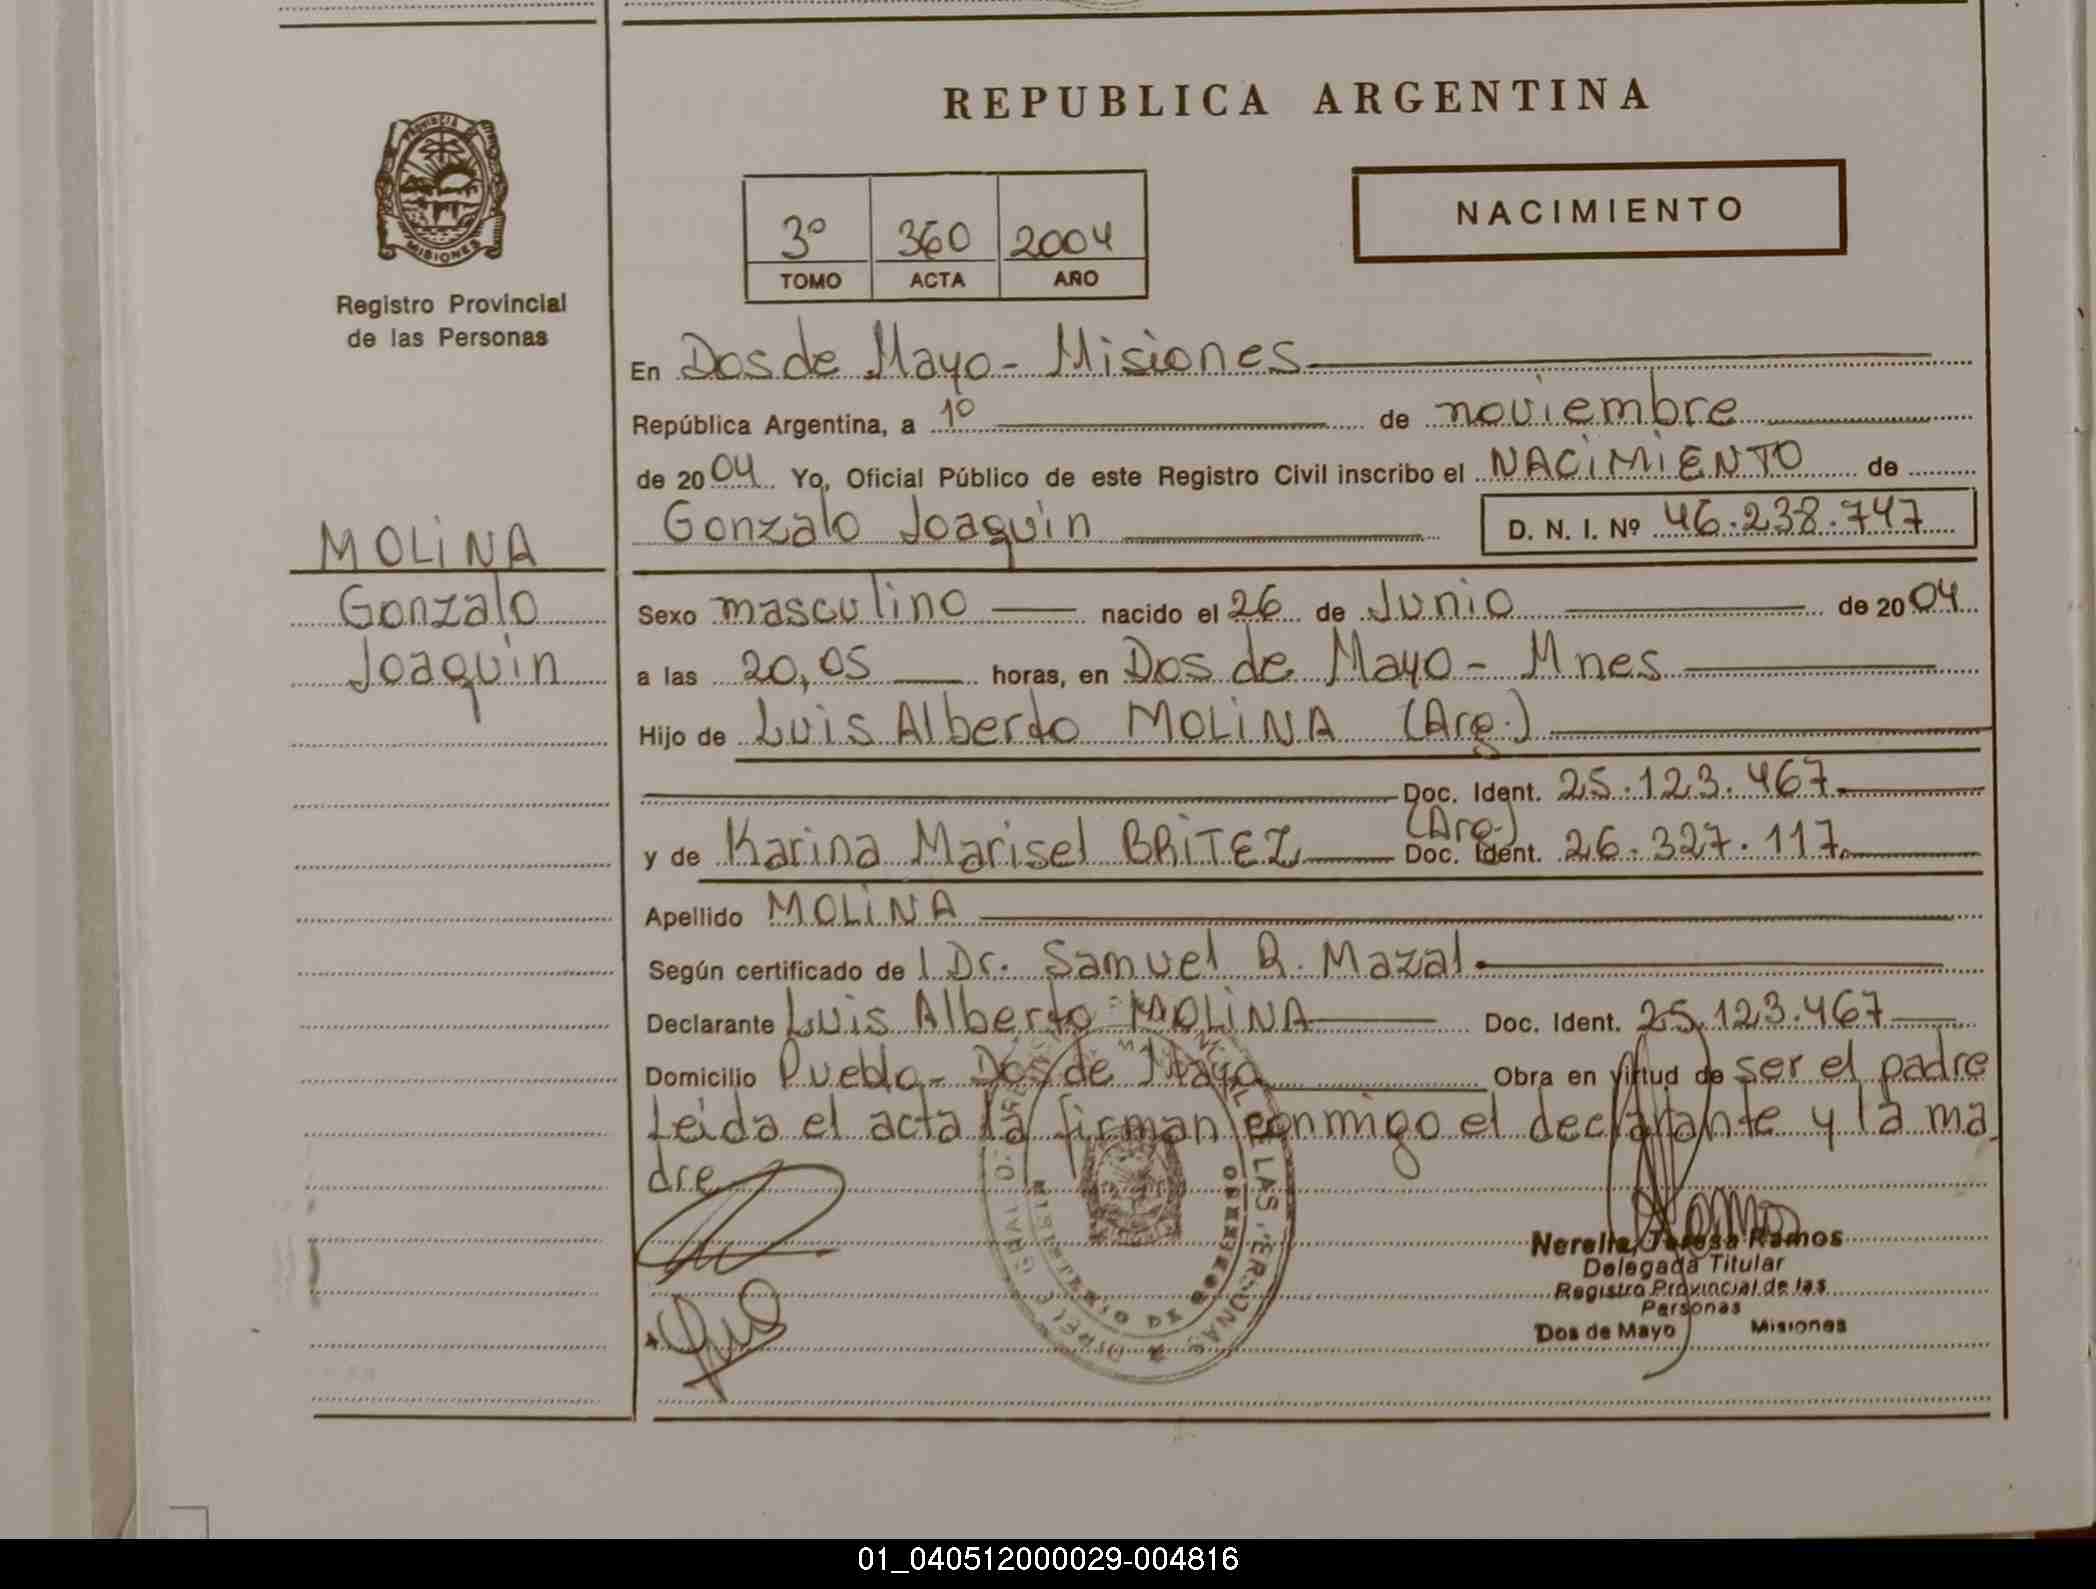 REPUBLICA ARGENTINA
PROVINCIA
MISIONES
Registro Provincial
de las Personas
3º 360 2004
TOMO ACTA AÑO
NACIMIENTO
En Dos de Mayo - Misiones
República Argentina, a 1º de noviembre
de 2004 Yo, Oficial Público de este Registro Civil inscribo el NACIMIENTO de
Gonzalo Joaquin D. N. I. Nº 46.238.747
MOLINA
Gonzalo
Joaquin
Sexo masculino nacido el 26 de Junio de 2004
a las 20,05 horas, en Dos de Mayo - Mnes
Hijo de Luis Alberto MOLINA (Arg.)
Doc. Ident. 25.123.467
(Arg.)
y de Karina Marisel BRITEZ Doc. Ident. 26.327.117
Apellido MOLINA
Según certificado de l Dr. Samuel R. Mazal
Declarante Luis Alberto MOLINA Doc. Ident. 25.123.467
Domicilio Pueblo - Dos de Mayo Obra en virtud de ser el padre
Leida el acta la firman conmigo el declarante y la ma
dre
MINISTERIO DE GOBIERNO
Nerelia Teresa Ramos
Delegada Titular
Registro Provincial de las
Personas
Dos de Mayo Misiones
01_040512000029-004816